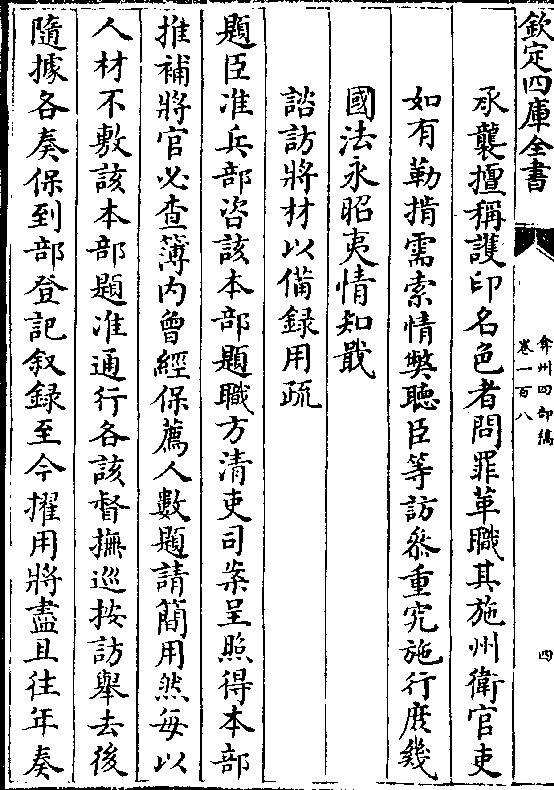 欽定四庫全書
弇州四部稿
卷一百八
四
承襲擅稱護印名色者問罪革職其施州衛官吏
如有勒掯需索情弊聽臣等訪叅重究施行庶幾
國法永昭夷情知戢
諮訪將材以備録用疏
題臣准兵部咨該本部題職方清吏司案呈照得本部
推補將官必查簿内曾經保薦人數題請簡用然每以
人材不敷該本部題准通行各該督撫廵按訪舉去後
隨據各奏保到部登記叙録至今擢用將盡且往年奏